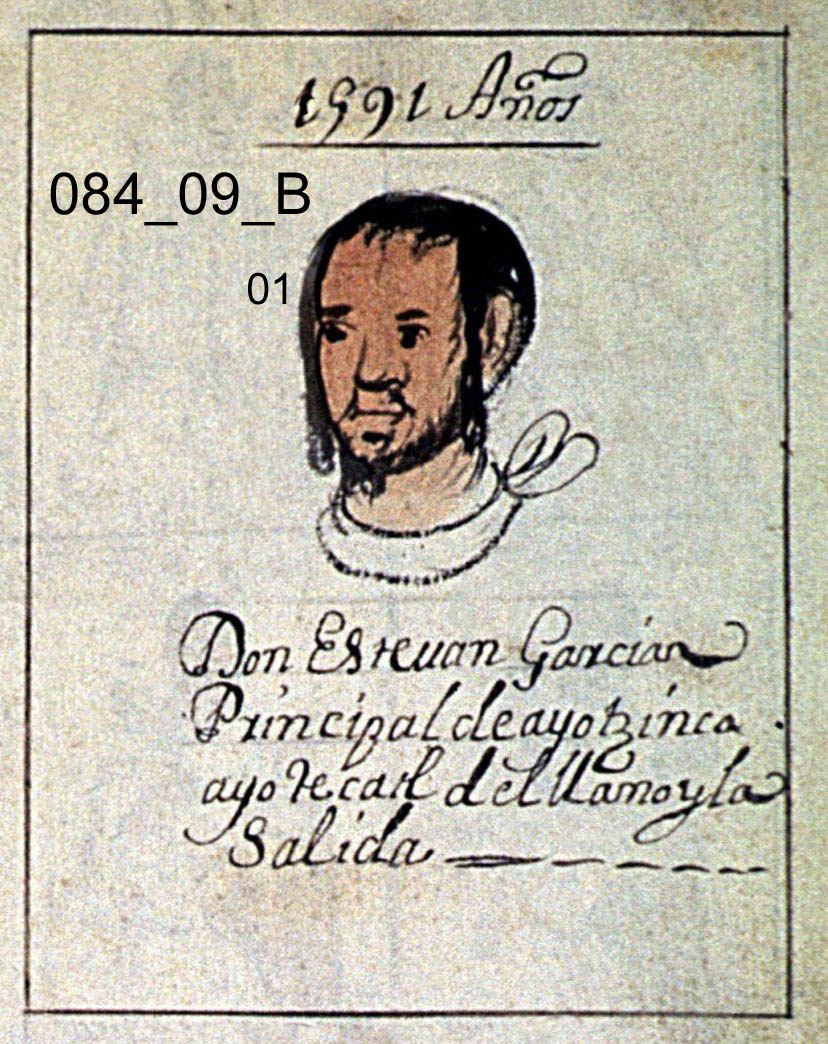 1591 Años
084_09_B
01
Don Esteuan Garcia
Principal de ayotzinca
ayotecatl del llamo y la
Salida